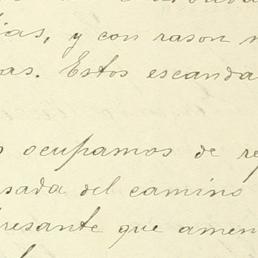 ias, y con rason n
as. Estos escanda
s ocupamos de re
sada del camino
resante que amen